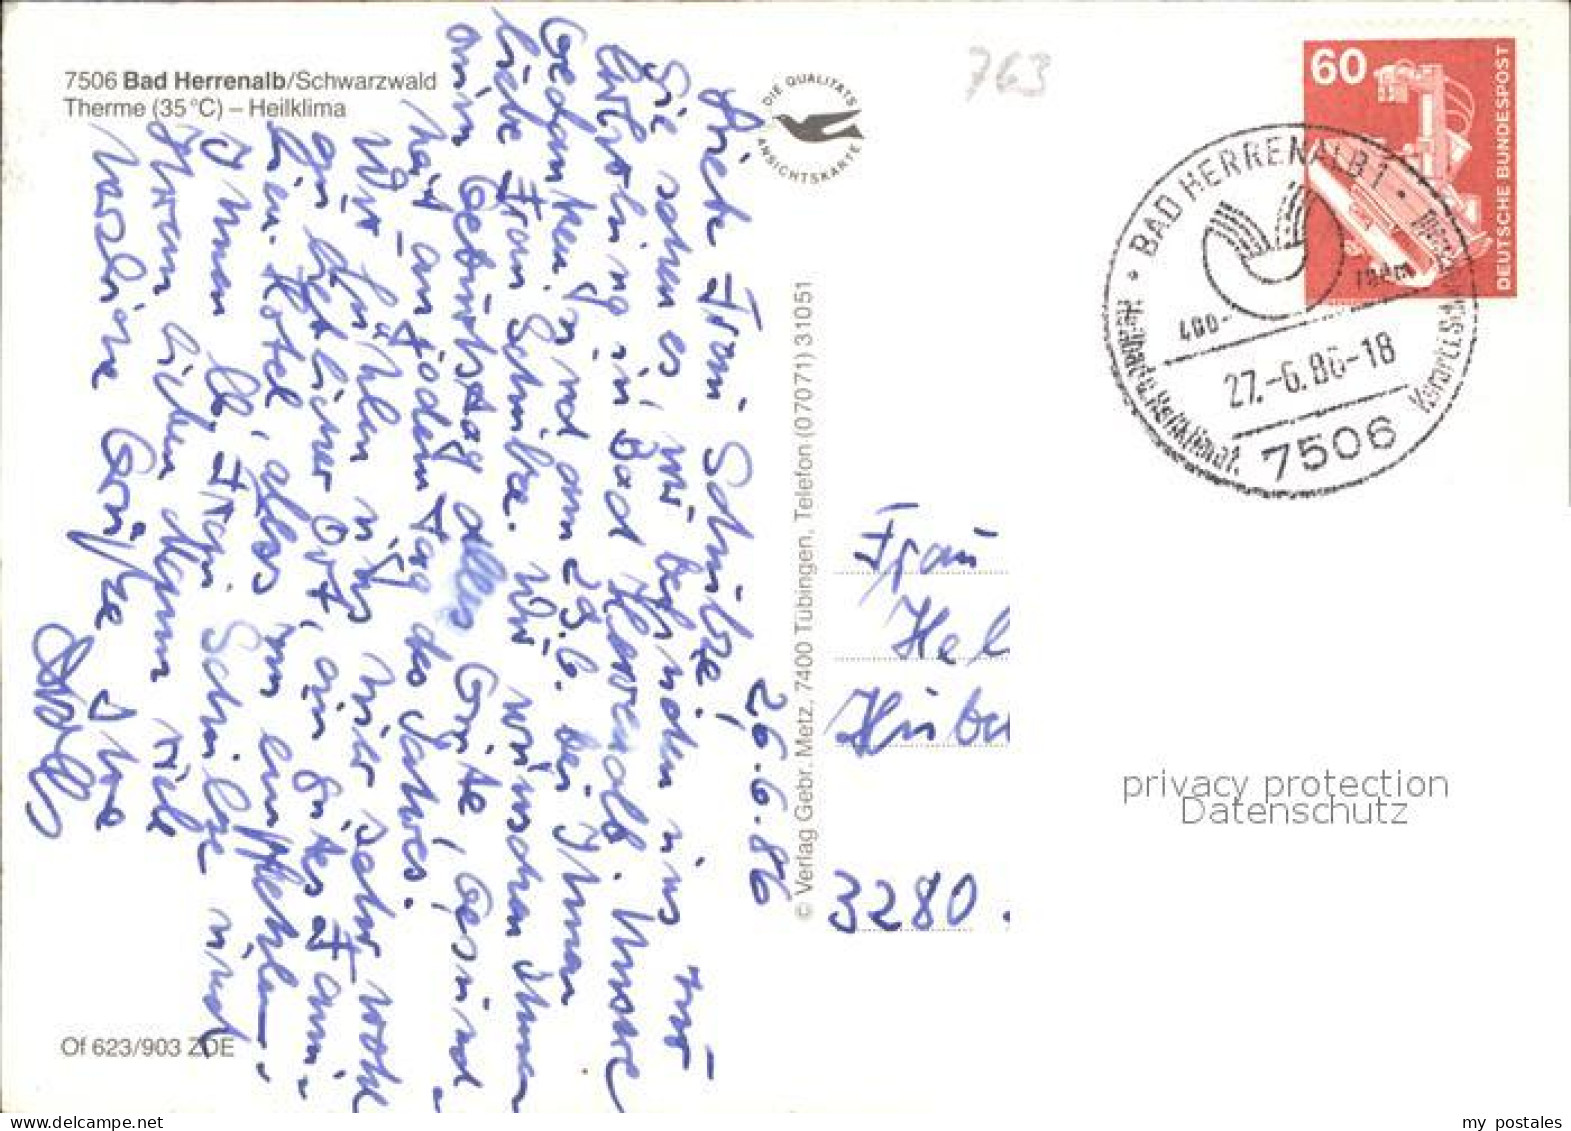 7506 Bad Herrenalb/Schwarzwald
Therme (35 °C) – Heilklima
DIE QUALITÄTS
ANSICHTSKARTE
763
60
DEUTSCHE BUNDESPOST
• BAD HERRENALB 1 •
400-
700m
27.-6.86-18
7506
Heilbad u. Heilklimat.
Kurort i. Sch
26.6.86
Liebe Frau Schulze,
Sie sehen es, wir befinden uns zur
Erholung in Bad Herrenalb. Unsere
Gedanken sind am 29.6. bei Ihnen
liebe Frau Schulze. Wir wünschen Ihnen
zum Geburtstag alles Gute, Gesund-
heit an jedem Tag des Jahres.
Wir fühlen uns hier sehr wohl
ein herrlicher Ort, ein gutes Fami-
lien Hotel, alles zum empfehlen.
Ihnen lb. Frau Schulze und
Ihrem lieben Mann viele
herzliche Grüße Ihre
© Verlag Gebr. Metz, 7400 Tübingen, Telefon (07071) 31051
Frau
Hel
3280
privacy protection
Datenschutz
Of 623/903 ZDE
my_postales